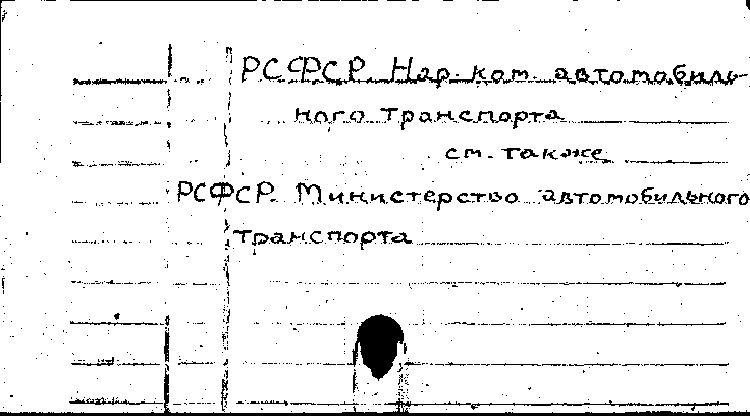 РСФСР. Нар. ком. автомобиль-
ного транспорта
см. также
РСФСР. Министерство автомобильного
транспорта